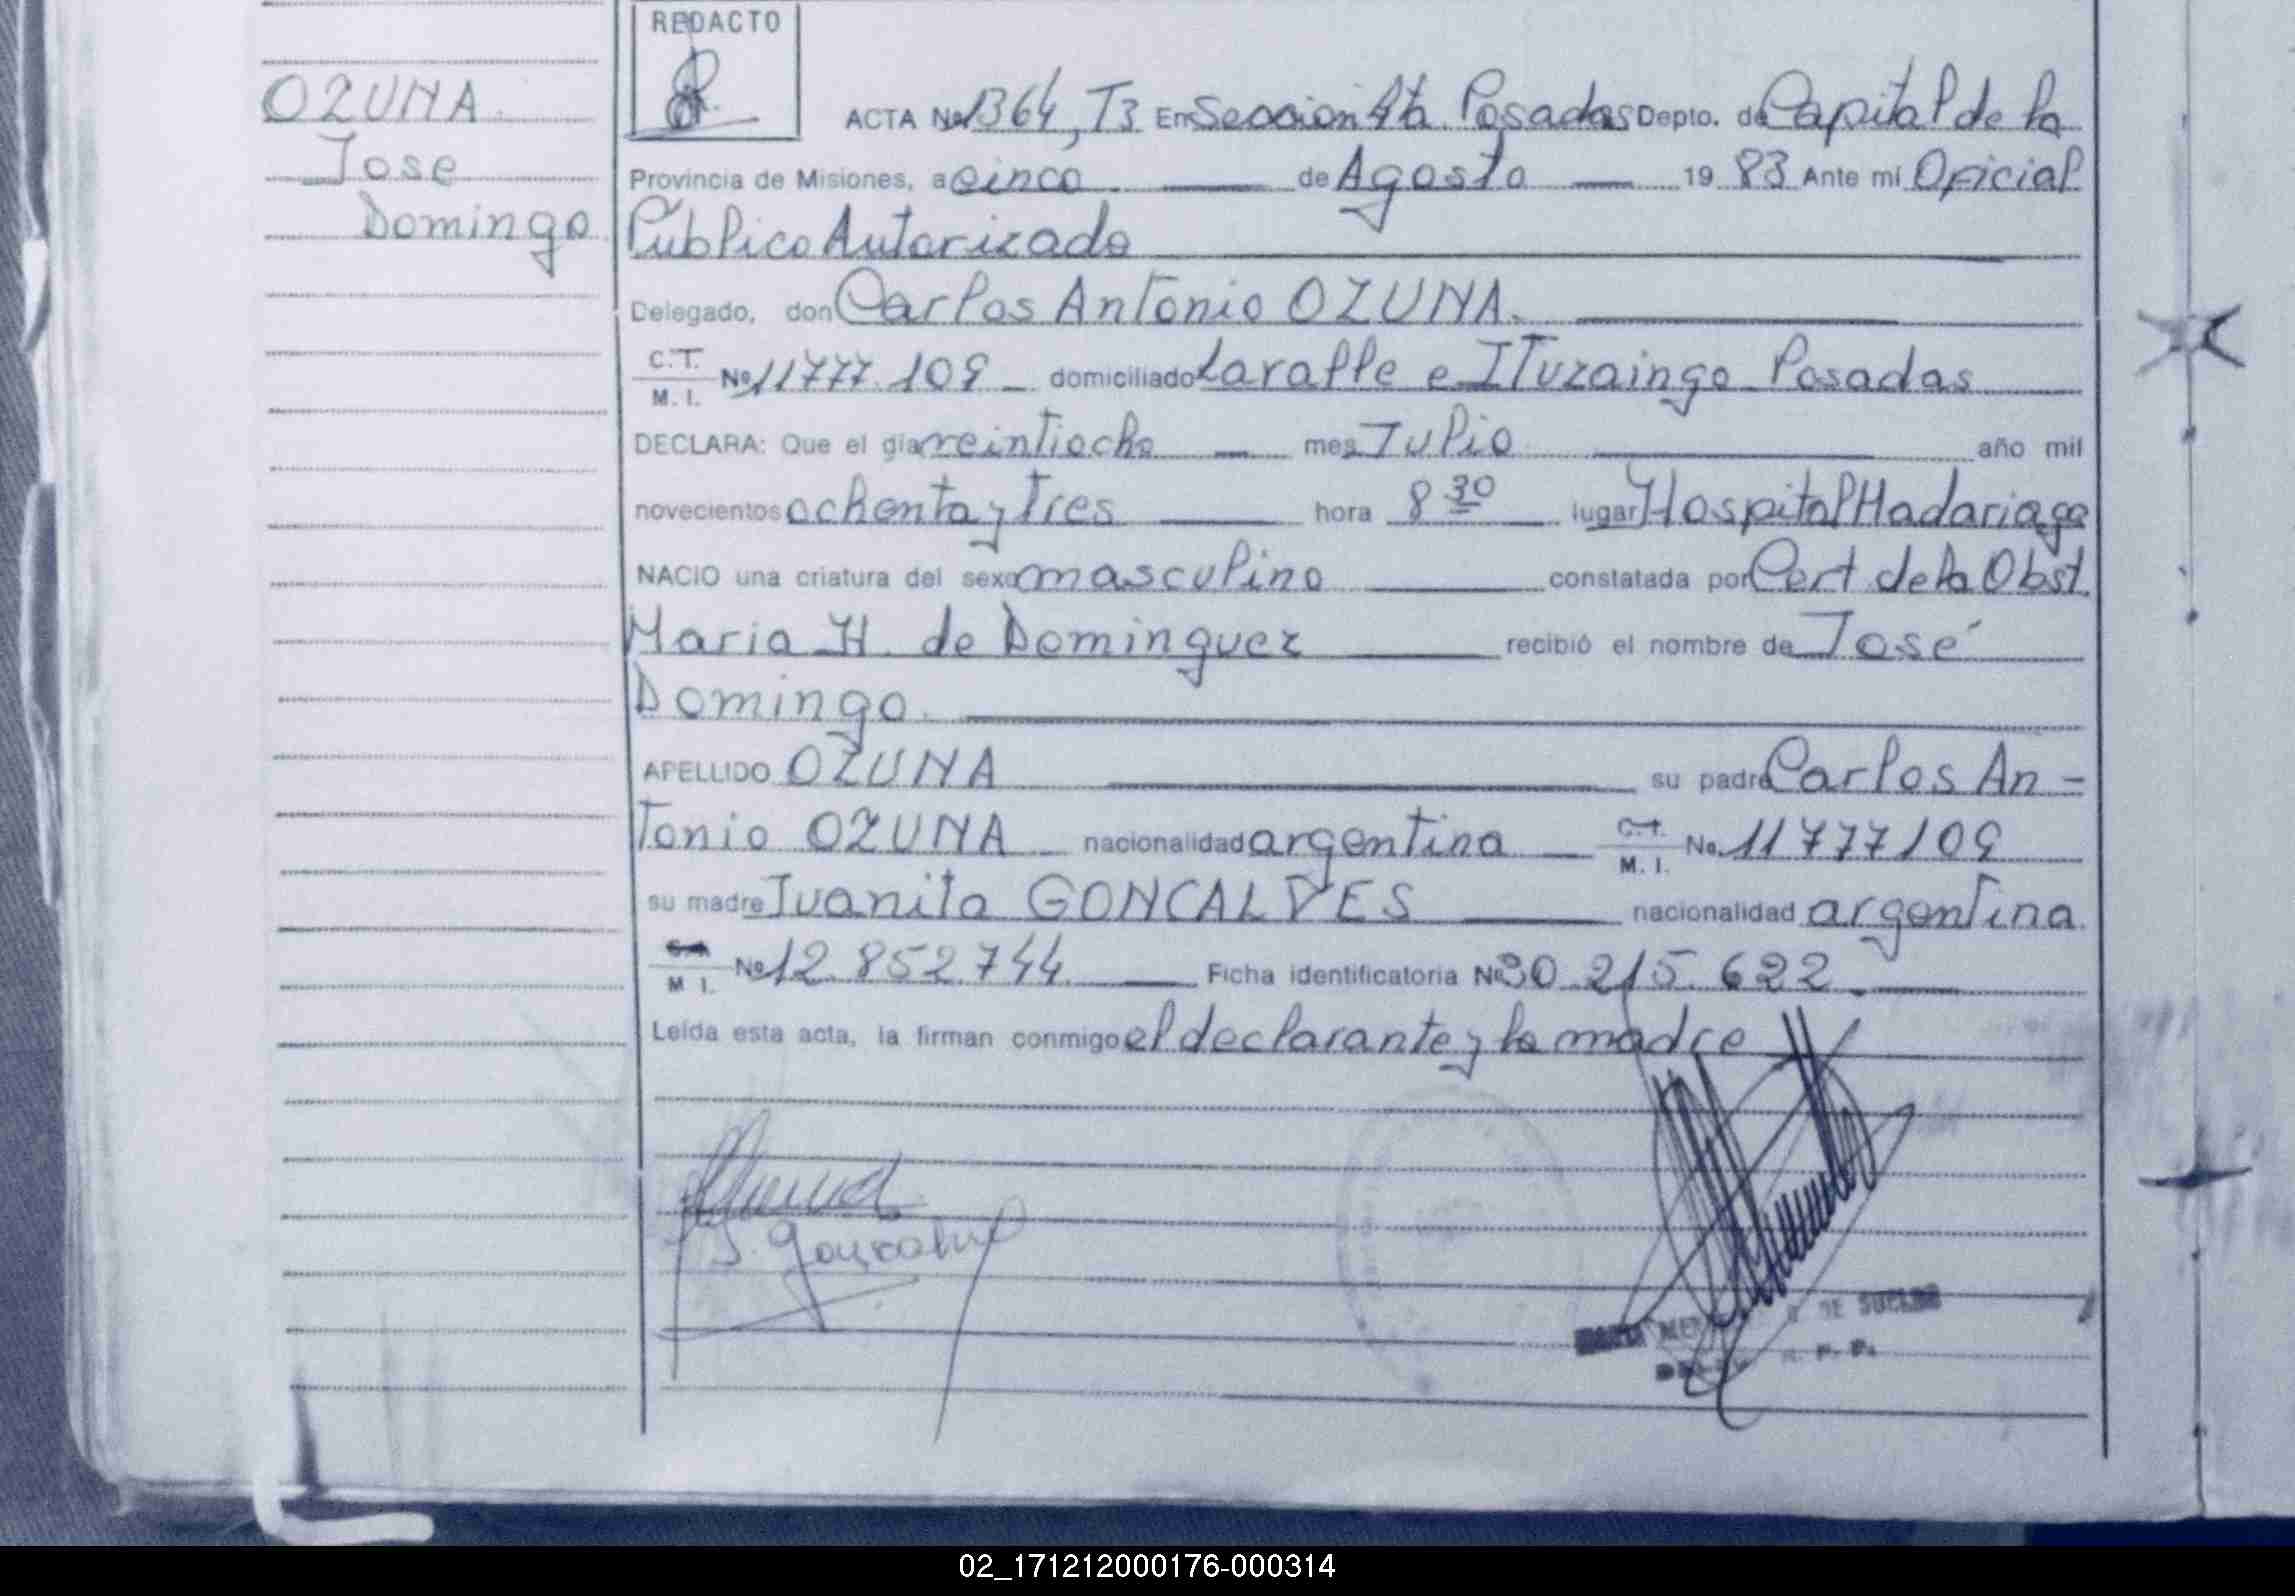 REDACTO
OZUNA
Jose
Domingo
ACTA No 1364, T3 En Seccion 4ta. Posadas Depto. de Capital de la
Provincia de Misiones, a cinco de Agosto 19 83 Ante mí Oficial
Público Autorizado
Delegado, don Carlos Antonio OZUNA.
C.T.
M. I. Nº 11777.109 domiciliado Laralle e ITuzaingo Posadas
DECLARA: Que el día veintiocho mes Julio año mil
novecientos ochenta y Tres hora 8 30 lugar Hospital Madariaga
NACIO una criatura del sexo masculino constatada por Cert de la Obst.
Maria H. de Dominguez recibió el nombre de José
Domingo.
APELLIDO OZUNA su padre Carlos An=
Tonio OZUNA nacionalidad argentina C.T. M. I. No. 11777109
su madre Juanita GONCALVES nacionalidad argentina.
M I. Nº 12.852.744 Ficha identificatoria Nº 30.215.622.
Leída esta acta, la firman conmigo el declarante y la madre
J. Goncalve
DE SUELDO
02_171212000176-000314